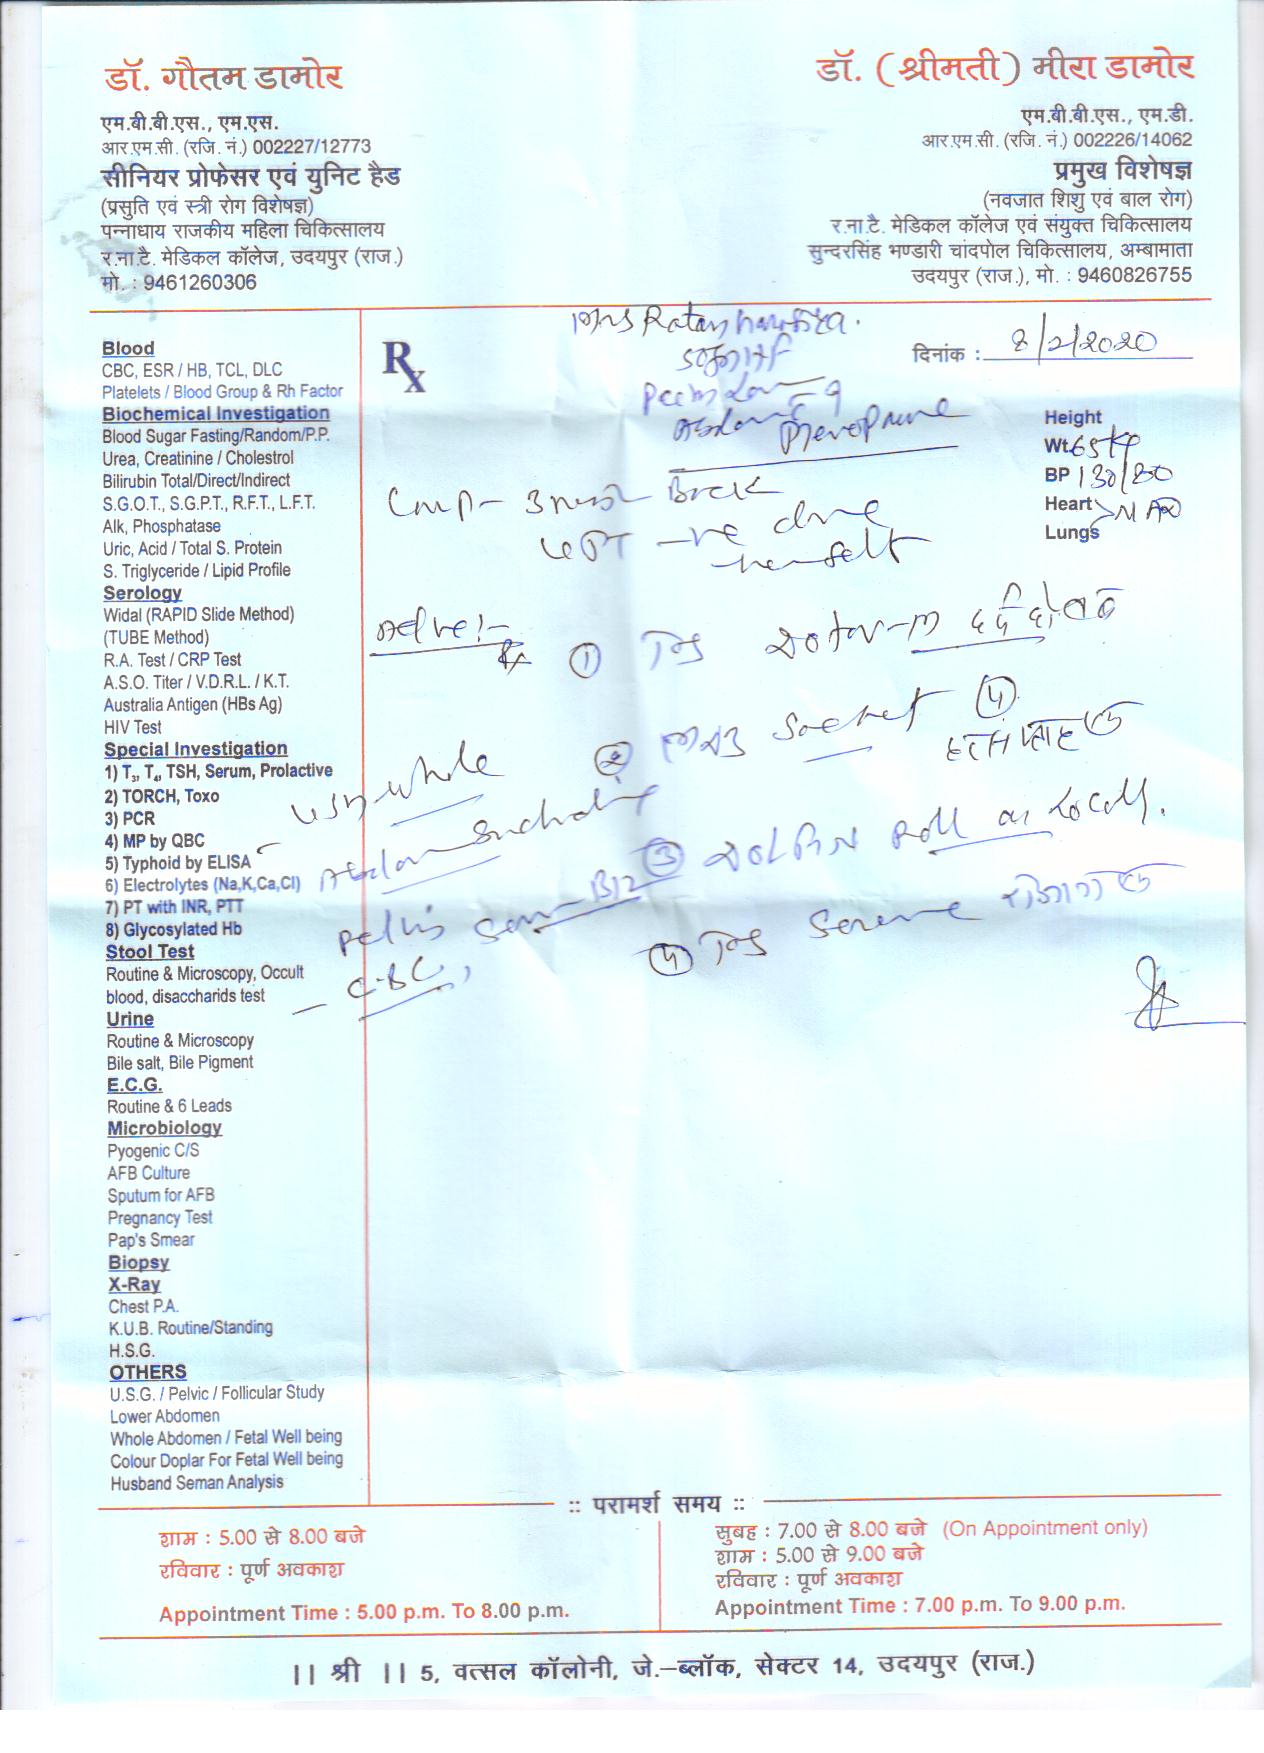 डॉ. गौतम डामोर
एम.बी.बी.एस., एम.एस.
आर.एम.सी. (रजि. नं.) 002227/12773
सीनियर प्रोफेसर एवं युनिट हैड
(प्रसुति एवं स्त्री रोग विशेषज्ञ)
पन्नाधाय राजकीय महिला चिकित्सालय
र.ना.टै. मेडिकल कॉलेज, उदयपुर (राज.)
मो. : 9461260306
डॉ. (श्रीमती) मीरा डामोर
एम.बी.बी.एस., एम.डी.
आर.एम.सी. (रजि. नं.) 002226/14062
प्रमुख विशेषज्ञ
(नवजात शिशु एवं बाल रोग)
र.ना.टै. मेडिकल कॉलेज एवं संयुक्त चिकित्सालय
सुन्दरसिंह भण्डारी चांदपोल चिकित्सालय, अम्बामाता
उदयपुर (राज.), मो. : 9460826755
Blood
CBC, ESR / HB, TCL, DLC
Platelets / Blood Group & Rh Factor
Biochemical Investigation
Blood Sugar Fasting/Random/P.P.
Urea, Creatinine / Cholestrol
Bilirubin Total/Direct/Indirect
S.G.O.T., S.G.P.T., R.F.T., L.F.T.
Alk, Phosphatase
Uric, Acid / Total S. Protein
S. Triglyceride / Lipid Profile
Serology
Widal (RAPID Slide Method)
(TUBE Method)
R.A. Test / CRP Test
A.S.O. Titer / V.D.R.L. / K.T.
Australia Antigen (HBs Ag)
HIV Test
Special Investigation
1) T₃, T₄, TSH, Serum, Prolactive
2) TORCH, Toxo
3) PCR
4) MP by QBC
5) Typhoid by ELISA
6) Electrolytes (Na,K,Ca,Cl)
7) PT with INR, PTT
8) Glycosylated Hb
Stool Test
Routine & Microscopy, Occult
blood, disaccharids test
Urine
Routine & Microscopy
Bile salt, Bile Pigment
E.C.G.
Routine & 6 Leads
Microbiology
Pyogenic C/S
AFB Culture
Sputum for AFB
Pregnancy Test
Pap's Smear
Biopsy
X-Ray
Chest P.A.
K.U.B. Routine/Standing
H.S.G.
OTHERS
U.S.G. / Pelvic / Follicular Study
Lower Abdomen
Whole Abdomen / Fetal Well being
Colour Doplar For Fetal Well being
Husband Seman Analysis
Rx
Mrs Ratan
दिनांक : 8/2/2020
Height
Wt. 65 kg
BP 130/80
Heart NAD
Lungs
LMP - 3 Back
UPT -ve done
herself
Advice :-
① Tab
② Sachet ④
USG whole
③ Roll on Locally.
Pelvis B12
④ Tab
- CBC,
:: परामर्श समय ::
शाम : 5.00 से 8.00 बजे
रविवार : पूर्ण अवकाश
Appointment Time : 5.00 p.m. To 8.00 p.m.
सुबह : 7.00 से 8.00 बजे (On Appointment only)
शाम : 5.00 से 9.00 बजे
रविवार : पूर्ण अवकाश
Appointment Time : 7.00 p.m. To 9.00 p.m.
।। श्री ।। 5, वत्सल कॉलोनी, जे.-ब्लॉक, सेक्टर 14, उदयपुर (राज.)